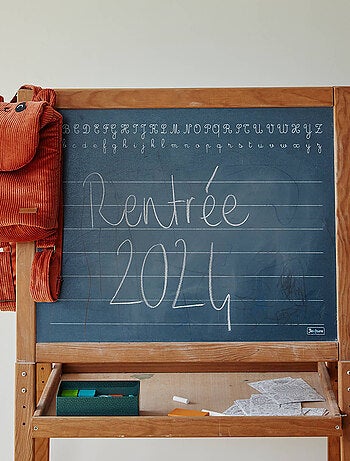 ABCDEFGHIJKLMNOPQRSTUVWXYZ
abcdefghijklmnopqrstuvwxyz
Rentrée
2024